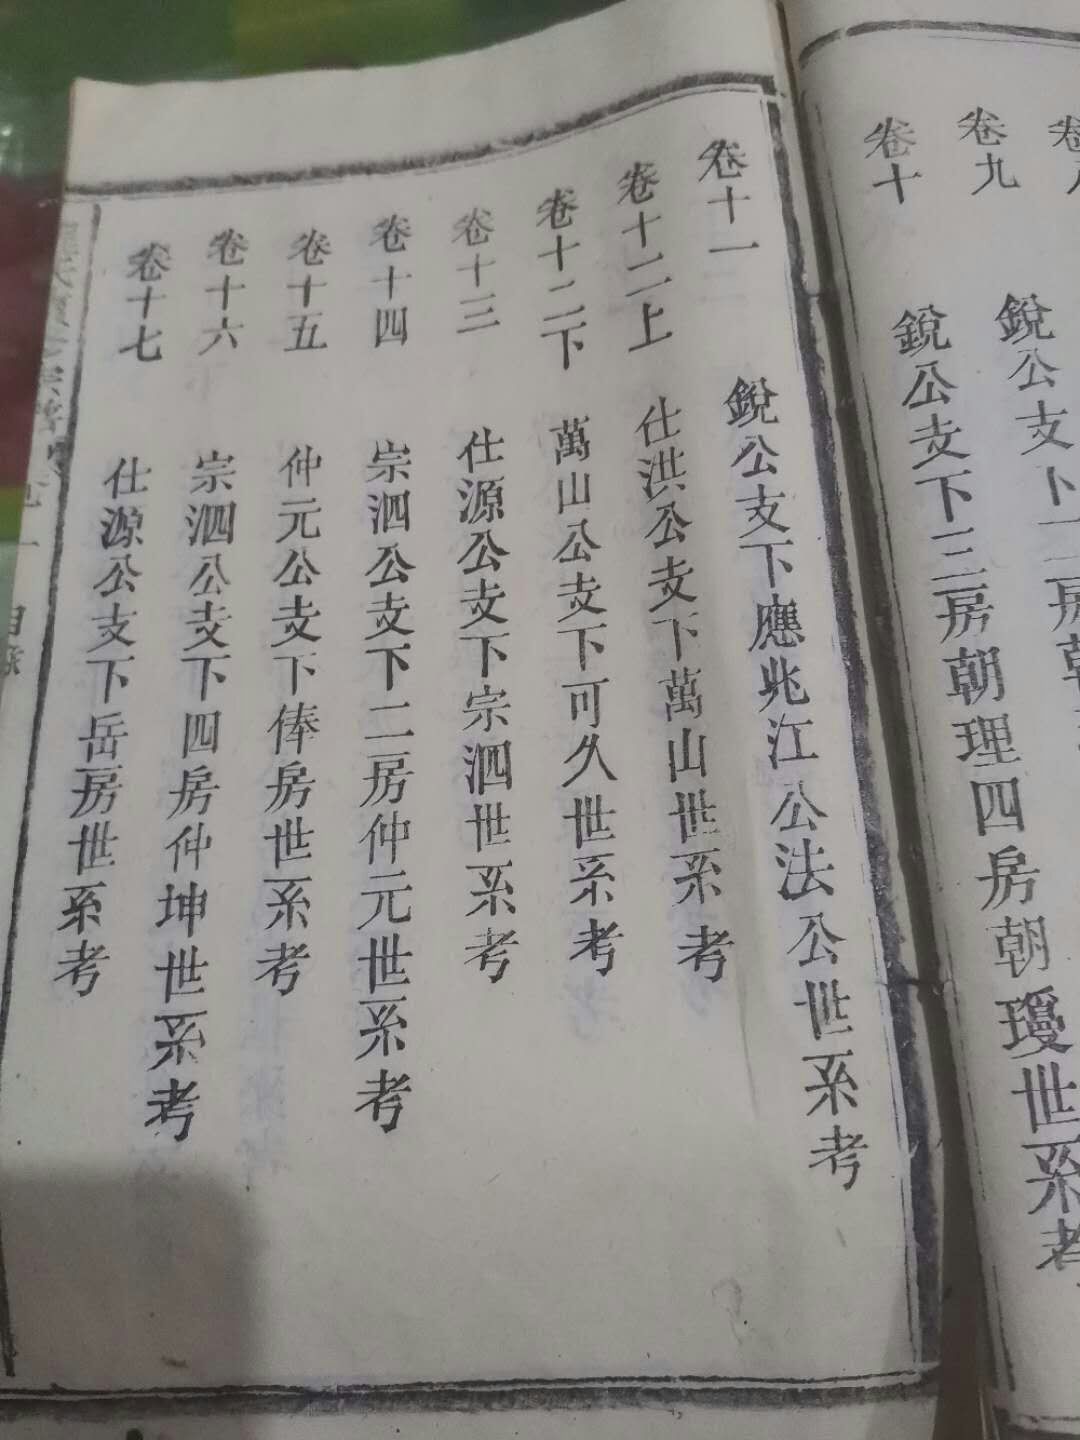 卷九
銳公支下二房朝
卷十
銳公支下三房朝理四房朝瓊世系考
卷十一
銳公支下應兆江公法公世系考
卷十二上
仕洪公支下萬山世系考
卷十二下
萬山公支下可久世系考
卷十三
仕源公支下宗泗世系考
卷十四
宗泗公支下二房仲元世系考
卷十五
仲元公支下俸房世系考
卷十六
宗泗公支下四房仲坤世系考
卷十七
仕源公支下岳房世系考